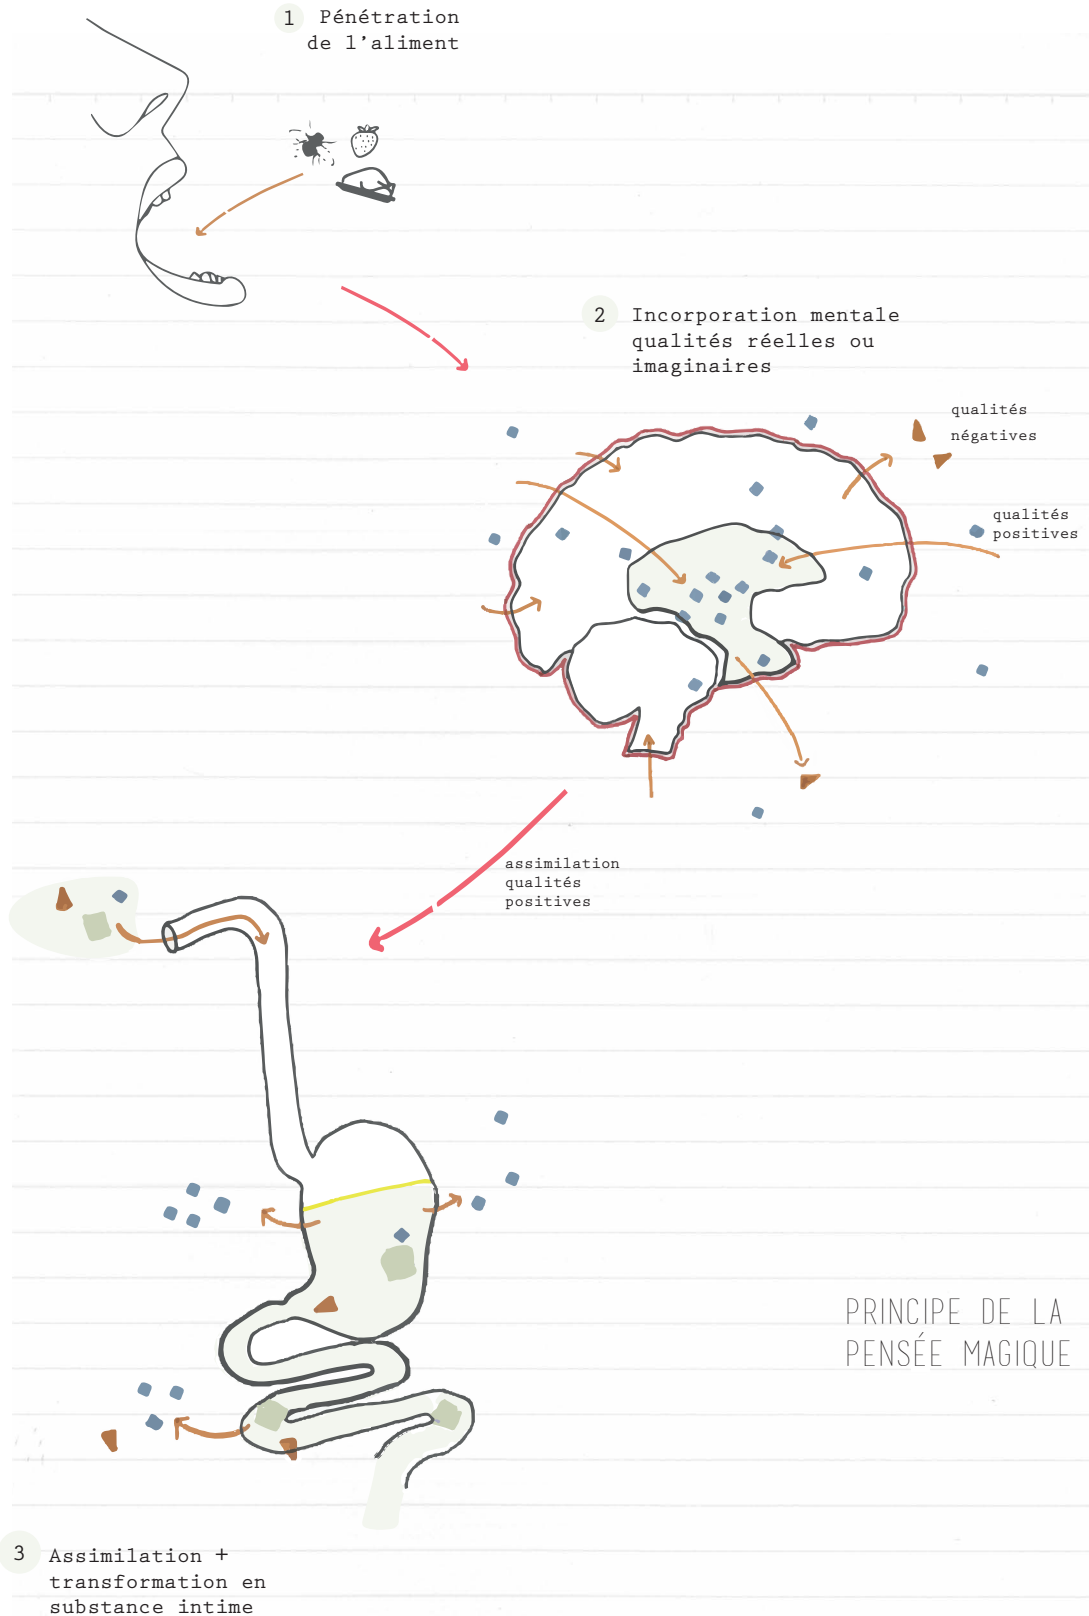 1 Pénétration
de l'aliment
2 Incorporation mentale
qualités réelles ou
imaginaires
qualités
négatives
qualités
positives
assimilation
qualités
positives
PRINCIPE DE LA
PENSÉE MAGIQUE
3 Assimilation +
transformation en
substance intime